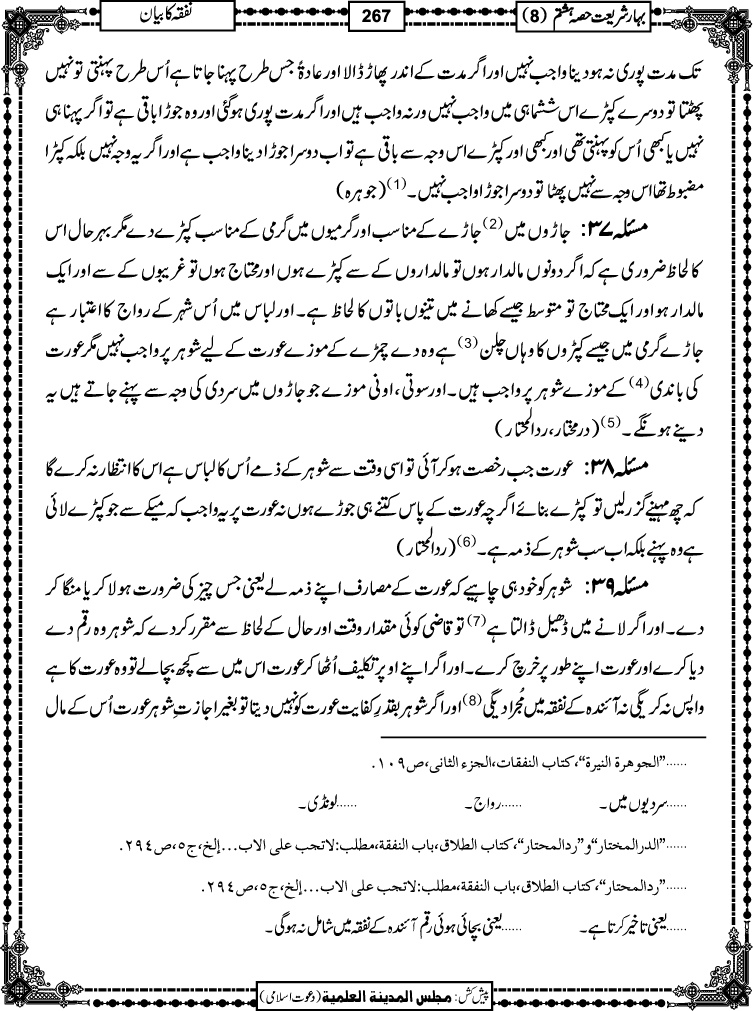 بہارِ شریعت حصہ ہشتم (8)
267
نفقہ کا بیان
تک مدت پوری نہ ہو دینا واجب نہیں اور اگر مدت کے اندر پھاڑ ڈالا اور عادۃً جس طرح پہنا جاتا ہے اُس طرح پہنتی تو نہیں
پھٹتا تو دوسرے کپڑے اس ششماہی میں واجب نہیں ورنہ واجب ہیں اور اگر مدت پوری ہوگئی اور وہ جوڑا باقی ہے تو اگر پہنا ہی
نہیں یا کبھی اُس کو پہنتی تھی اور کبھی اور کپڑے اس وجہ سے باقی ہے تو اب دوسرا جوڑا دینا واجب ہے اور اگر یہ وجہ نہیں بلکہ کپڑا
مضبوط تھا اس وجہ سے نہیں پھٹا تو دوسرا جوڑا واجب نہیں۔(1) (جوہرہ)
مسئلہ ۳۷: جاڑوں میں(2) جاڑے کے مناسب اور گرمیوں میں گرمی کے مناسب کپڑے دے مگر بہرحال اس
کا لحاظ ضروری ہے کہ اگر دونوں مالدار ہوں تو مالداروں کے سے کپڑے ہوں اور محتاج ہوں تو غریبوں کے سے اور ایک
مالدار ہو اور ایک محتاج تو متوسط جیسے کھانے میں تینوں باتوں کا لحاظ ہے۔ اور لباس میں اُس شہر کے رواج کا اعتبار ہے
جاڑے گرمی میں جیسے کپڑوں کا وہاں چلن(3) ہے وہ دے چمڑے کے موزے عورت کے لیے شوہر پر واجب نہیں مگر عورت
کی باندی(4) کے موزے شوہر پر واجب ہیں۔ اور سوتی، اونی موزے جو جاڑوں میں سردی کی وجہ سے پہنے جاتے ہیں یہ
دینے ہونگے۔(5) (درمختار، ردالمحتار)
مسئلہ ۳۸: عورت جب رخصت ہو کر آئی تو اسی وقت سے شوہر کے ذمے اُس کا لباس ہے اس کا انتظار نہ کرے گا
کہ چھ مہینے گزر لیں تو کپڑے بنائے اگرچہ عورت کے پاس کتنے ہی جوڑے ہوں نہ عورت پر یہ واجب کہ میکے سے جو کپڑے لائی
ہے وہ پہنے بلکہ اب سب شوہر کے ذمہ ہے۔(6) (ردالمحتار)
مسئلہ ۳۹: شوہر کو خود ہی چاہیے کہ عورت کے مصارف اپنے ذمہ لے یعنی جس چیز کی ضرورت ہو لا کر یا منگا کر
دے۔ اور اگر لانے میں ڈھیل ڈالتا ہے(7) تو قاضی کوئی مقدار وقت اور حال کے لحاظ سے مقرر کر دے کہ شوہر وہ رقم دے
دیا کرے اور عورت اپنے طور پر خرچ کرے۔ اور اگر اپنے اوپر تکلیف اُٹھا کر عورت اس میں سے کچھ بچا لے تو وہ عورت کا ہے
واپس نہ کریگی نہ آئندہ کے نفقہ میں مُجرا دیگی(8) اور اگر شوہر بقدرِ کفایت عورت کو نہیں دیتا تو بغیر اجازتِ شوہر عورت اُس کے مال
......”الجوھرۃ النیرۃ“، کتاب النفقات، الجزء الثانی، ص۱۰۹.
......سردیوں میں۔ ......رواج۔ ......لونڈی۔
......”الدرالمختار“ و ”ردالمحتار“، کتاب الطلاق، باب النفقۃ، مطلب: لاتجب علی الاب...إلخ، ج۵، ص۲۹۴.
......”ردالمحتار“، کتاب الطلاق، باب النفقۃ، مطلب: لاتجب علی الاب...إلخ، ج۵، ص۲۹٤.
......یعنی تاخیر کرتا ہے۔ ......یعنی بچائی ہوئی رقم آئندہ کے نفقہ میں شامل نہ ہوگی۔
پیش کش: مجلس المدینۃ العلمیۃ (دعوت اسلامی)